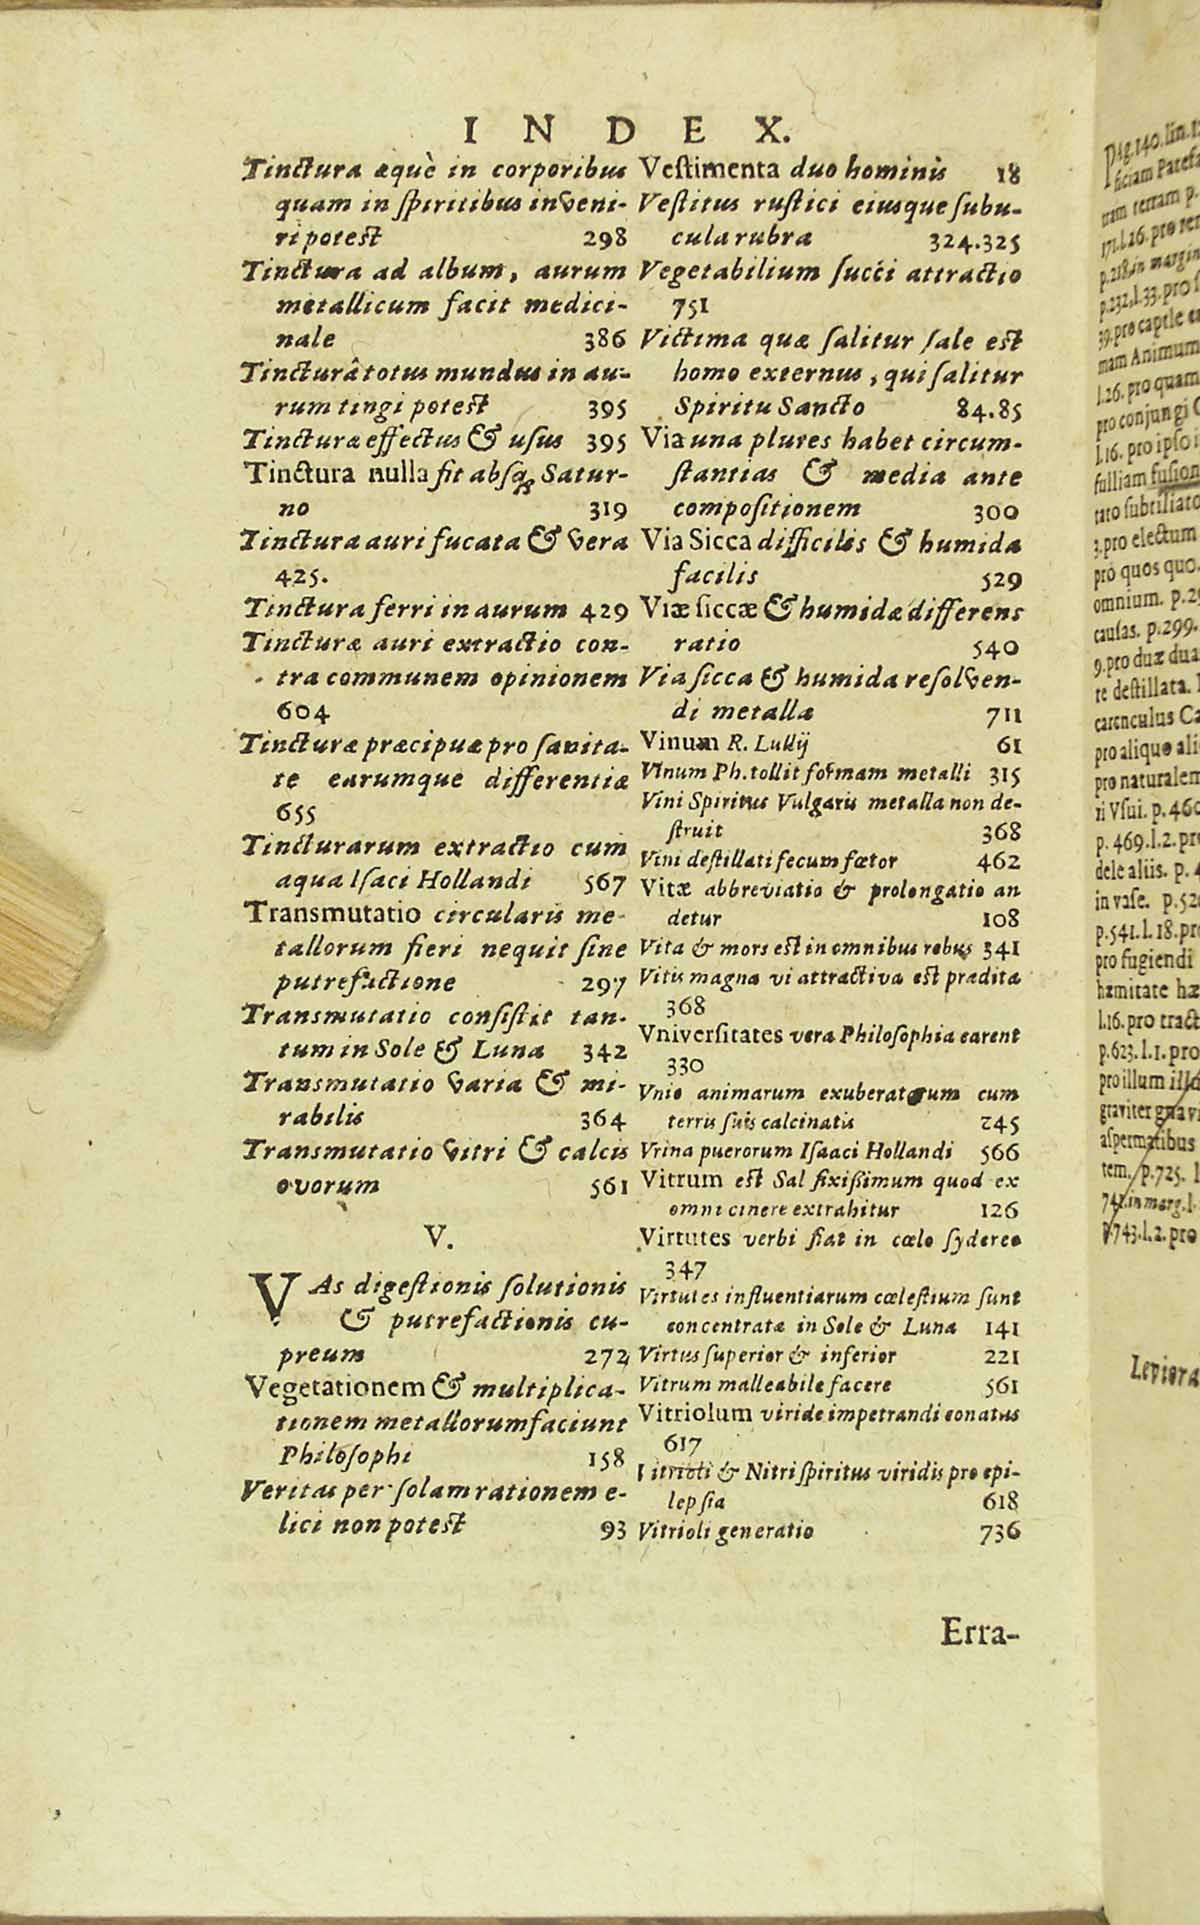 INDEX.
Tinctura æquè in corporibus
quam in spiritibus inveni-
ri potest 298
Tinctura ad album, aurum
metallicum facit medici-
nale 386
Tincturâ totus mundus in au-
rum tingi potest 395
Tincturæ effectus & usus 395
Tinctura nulla fit absq; Satur-
no 319
Tinctura auri fucata & vera
425.
Tinctura ferri in aurum 429
Tincturæ auri extractio con-
tra communem opinionem
604
Tincturæ præcipuæ pro sanita-
te earumque differentiæ
655
Tincturarum extractio cum
aqua Isaci Hollandi 567
Transmutatio circularis me-
tallorum fieri nequit sine
putrefactione 297
Transmutatio consistit tan-
tum in Sole & Luna 342
Transmutatio varia & mi-
rabilis 364
Transmutatio vitri & calcis
ovorum 561
V.
VAs digestionis solutionis
& putrefactionis cu-
preum 272
Vegetationem & multiplica-
tionem metallorum faciunt
Philosophi 158
Veritas per solam rationem e-
lici non potest 93
Vestimenta duo hominis 18
Vestitus rustici eiusque subu-
cula rubra 324.325
Vegetabilium succi attractio
751
Victima quæ salitur sale est
homo externus, qui salitur
Spiritu Sancto 84.85
Via una plures habet circum-
stantias & media ante
compositionem 300
Via Sicca difficilis & humida
facilis 529
Viæ siccæ & humidæ differens
ratio 540
Via sicca & humida resolven-
di metalla 711
Vinum R. Lullij 61
Vinum Ph. tollit formam metalli 315
Vini Spiritus Vulgaris metalla non de-
struit 368
Vini destillati fecum fœtor 462
Vitæ abbreviatio & prolongatio an
detur 108
Vita & mors est in omnibus rebus 341
Vitis magna vi attractiva est prædita
368
Vniversitates vera Philosophia carent
330
Vnio animarum exuberatorum cum
terris suis calcinatis 245
Vrina puerorum Isaaci Hollandi 566
Vitrum est Sal fixißimum quod ex
omni cinere extrahitur 126
Virtutes verbi fiat in cœlo sydereo
347
Virtutes influentiarum cœlestium sunt
concentratæ in Sole & Luna 141
Virtus superior & inferior 221
Vitrum malleabile facere 561
Vitriolum viride impetrandi conatus
617
Vitrioli & Nitri spiritus viridis pro epi-
lepsia 618
Vitrioli generatio 736
Erra-
Pag. 140. lin.
ficiam
tram terram p.
171. l. 26. pro
p. 218. in margin
p. 232. l. 33. pro
39. pro captle
mam Animum
l. 26. pro quam
pro conjungi
l. 16. pro ipso
fulliam fusion
tato subtiliato
3. pro electum
pro quos quo.
omnium. p.
causas. p. 299.
9. pro duæ dua
te destillata.
carenculus
pro alique
pro naturalem
ri Vsui. p. 460
p. 469. l. 2. pro
dele aliis. p.
in vase. p.
p. 541. l. 18. pro
pro fugiendi
hæmitate
l. 16. pro tract
p. 623. l. 1. pro
pro illum
graviter gnavi
aspermatibus
tem. p. 725.
741. in marg. l.
p. 743. l. 2. pro
Leviora